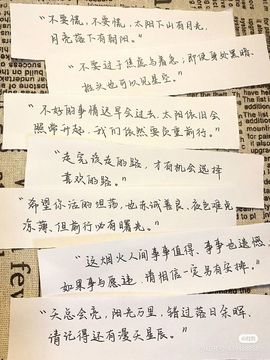 "不要慌,不要慌,太阳下山有月光,
月亮落下有朝阳。"
"不要过于焦虑与着急;即使身处黑暗,
抬头也可以见星空。"
"不好的事情迟早会过去,太阳依旧会
照常升起,我们依然要负重前行。"
"走完该走的路,才有机会选择
喜欢的路。"
"希望你活的坦荡,也赤诚善良,夜色难免
凉薄,但前行必有曙光。"
"这烟火人间事事值得,事事也遗憾
如果事与愿违,请相信一定另有安排。"
"天总会亮,阳光万里,错过落日余晖,
请记得还有漫天星辰。"